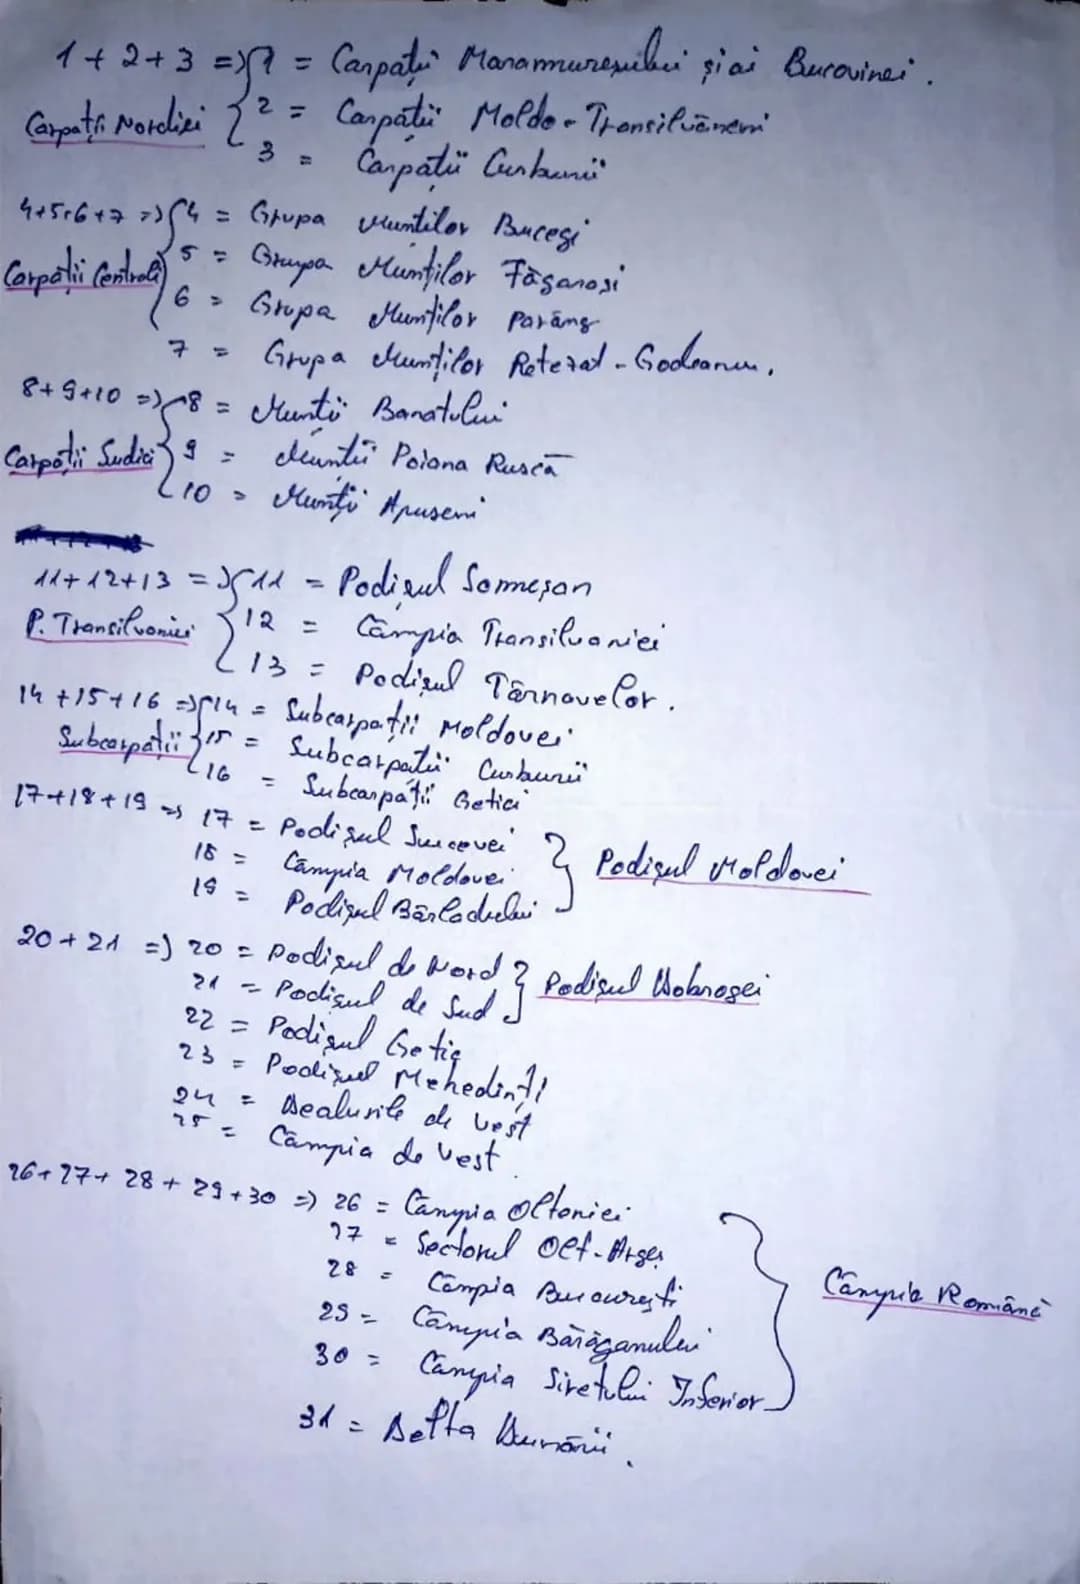 1 + 2 + 3 => 1 = Carpații Maramureșului și ai Bucovinei.
Carpații Nordici 2 = Carpații Moldo-Transilvăneni
3 = Carpații Curburii
4+5+6+7 => 4 = Grupa Munților Bucegi
Carpații Centrali 5 = Grupa Munților Făgăroși
6 = Grupa Munților Parâng
7 = Grupa Munților Retezat-Godeanu.
8+9+10 => 8 = Munții Banatului
Carpații Sudici 9 = Munții Poiana Ruscă
10 = Munții Apuseni
11+12+13 => 11 = Podișul Someșan
P. Transilvaniei 12 = Câmpia Transilvaniei
13 = Podișul Târnavelor.
14+15+16 => 14 = Subcarpații Moldovei
Subcarpații 15 = Subcarpații Curburii
16 = Subcarpații Getici
17+18+19 => 17 = Podișul Sucevei
18 = Câmpia Moldovei } Podișul Moldovei
19 = Podișul Bârladului
20+21 => 20 = Podișul de Nord } Podișul Dobrogei
21 = Podișul de Sud
22 = Podișul Getic
23 = Podișul Mehedinți
24 = Dealurile de Vest
25 = Câmpia de Vest
26+27+28+29+30 => 26 = Câmpia Olteniei
27 = Sectorul Olt-Argeș
28 = Câmpia București } Câmpia Română
29 = Câmpia Bărăganului
30 = Câmpia Siretului Inferior
31 = Delta Dunării.